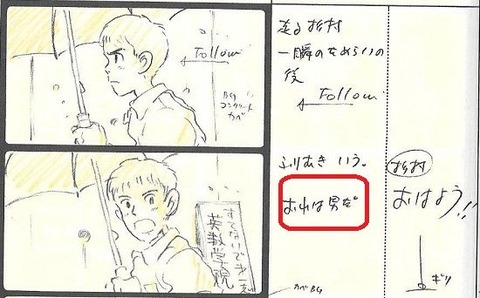 Follow
BG
コンクリート
カベ
走る杉村
一瞬のためらいの
後
Follow
英数学院
ふりむき いう。
おれは男だ
カベBG
杉村
おはよう!!
ギリ